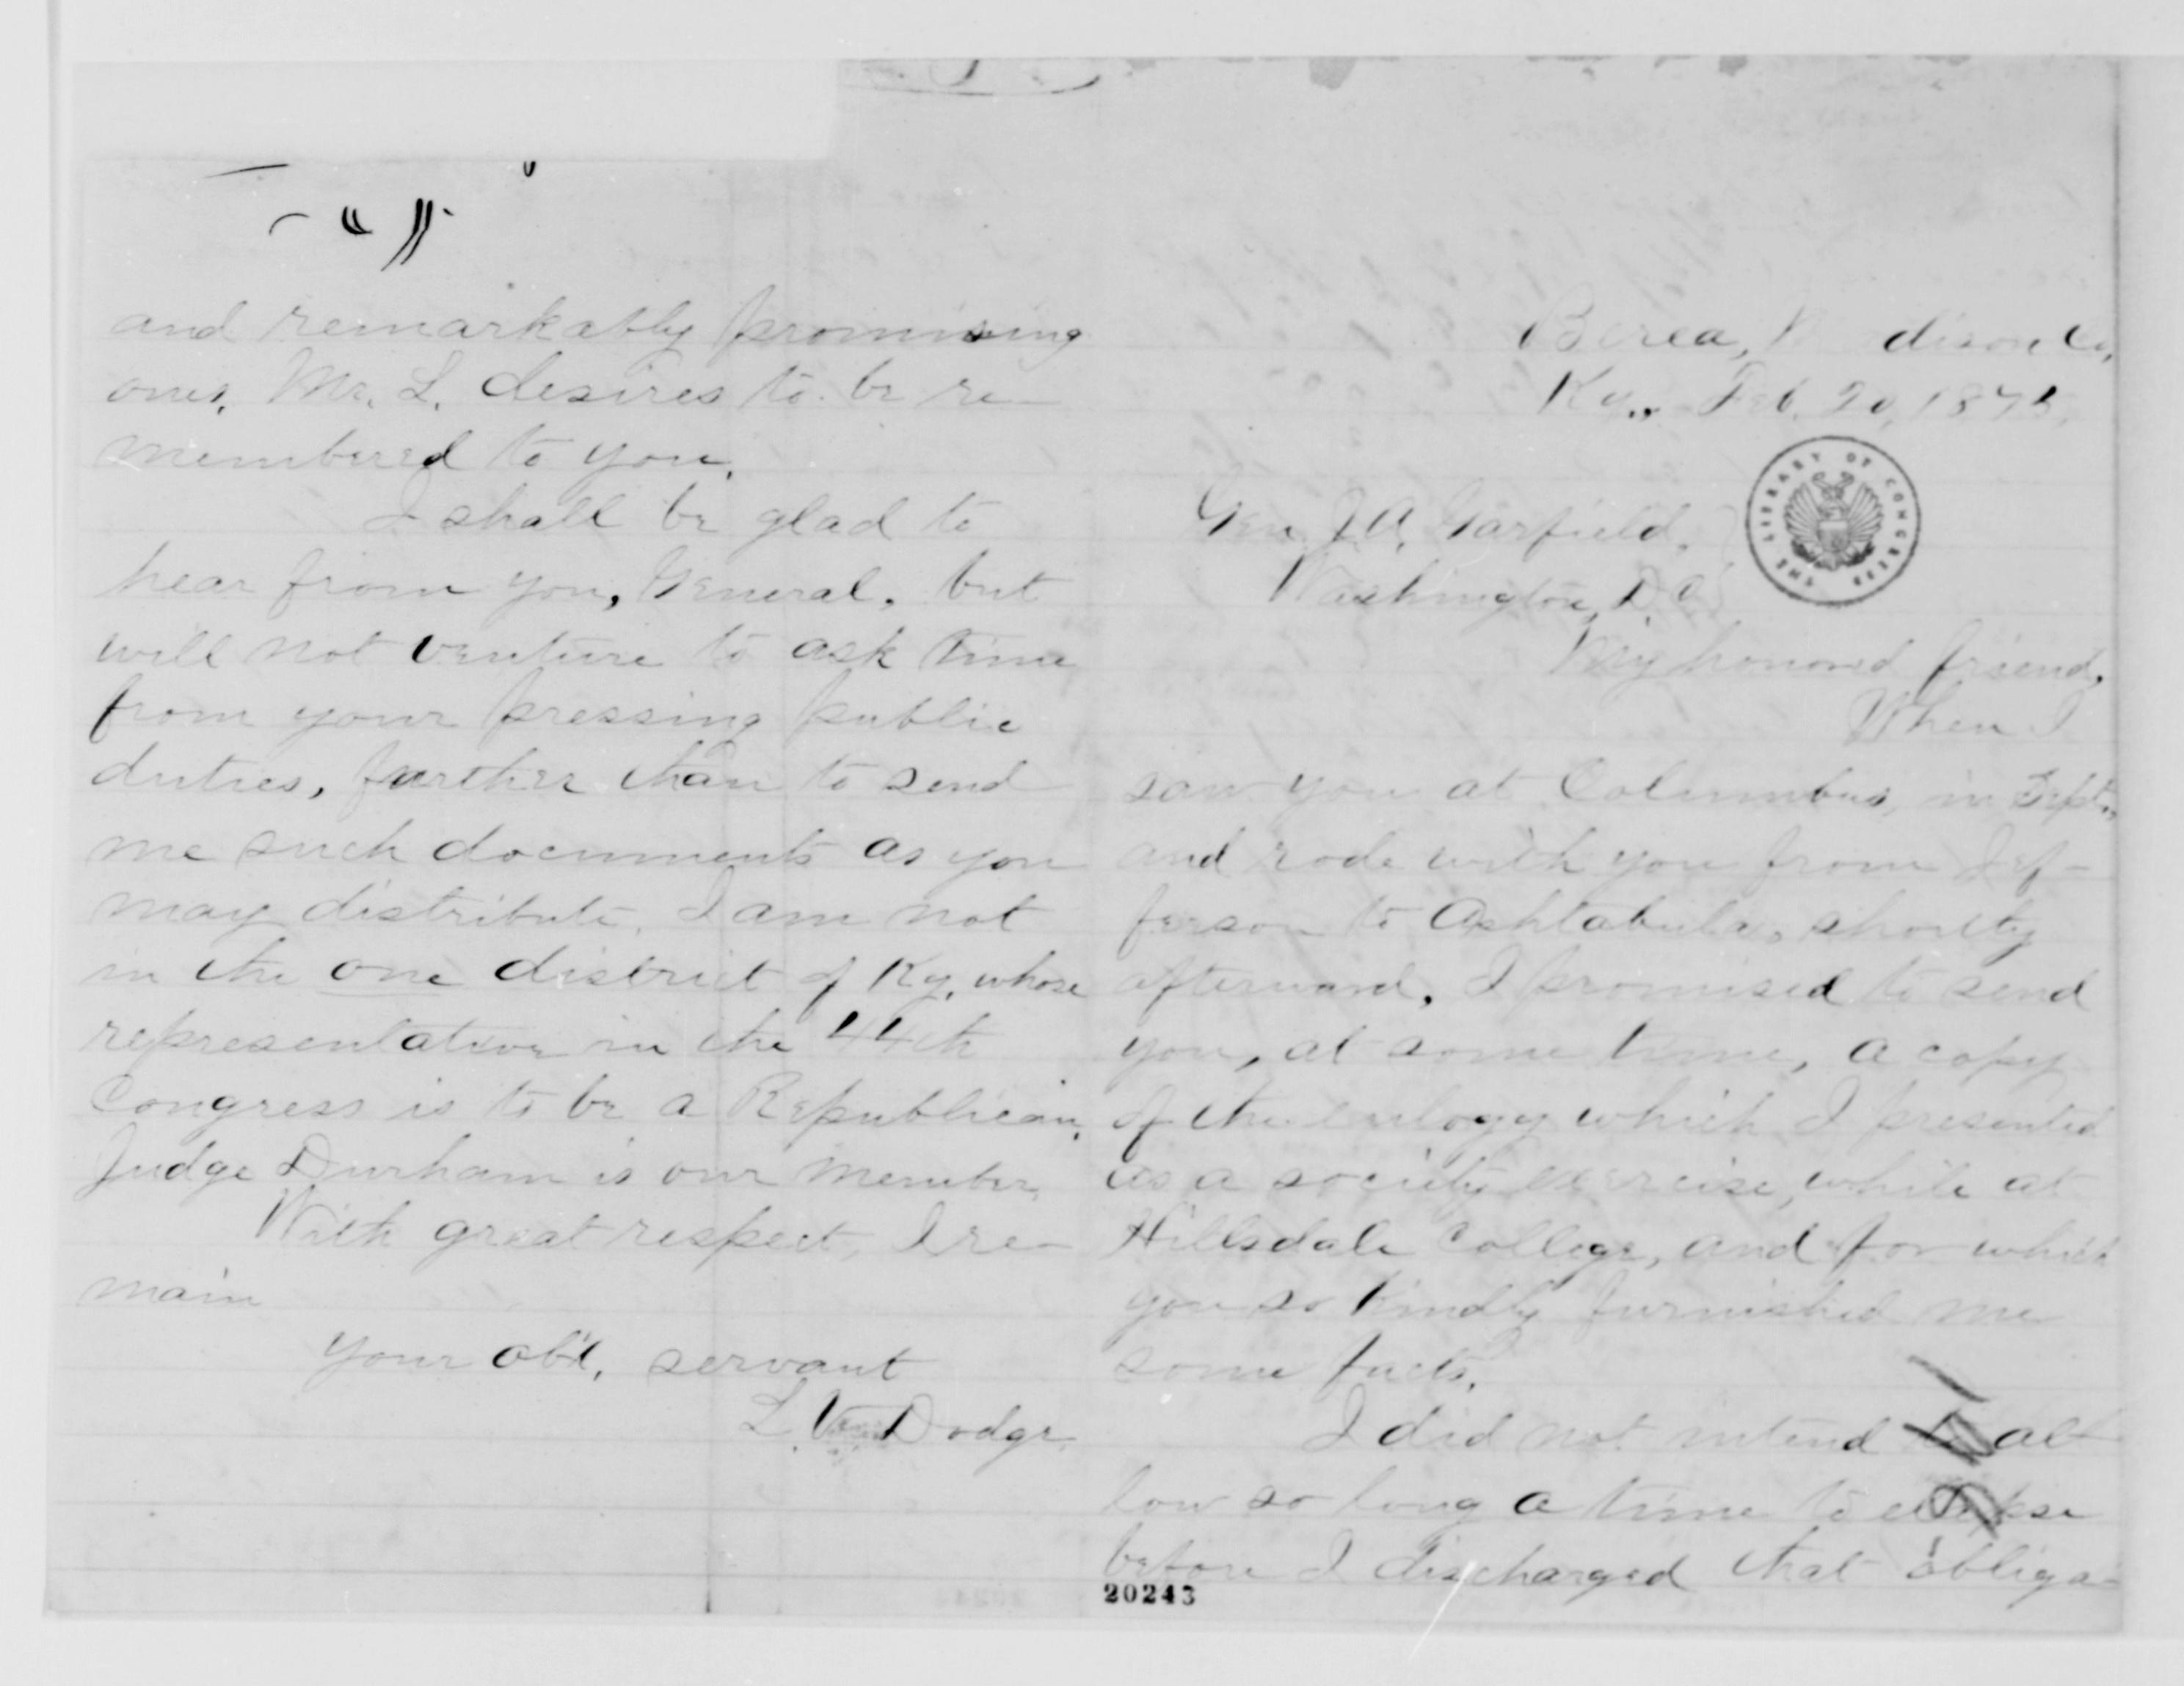 Berea, M dison Co,
Ky., Feb. 20, 1875.
THE LIBRARY OF CONGRESS
Gen. J. A. Garfield,
Washington, D.C.
My honored friend,
When I
saw you at Columbus, in Sept.,
and rode with you from Jef-
ferson to Ashtabula, shortly
afterward, I promised to send
you, at some time, a copy
of the eulogy which I presented
as a society exercise, while at
Hillsdale College, and for which
you so kindly furnished me
some facts.
I did not intend to al-
low so long a time to elapse
before I discharged that obliga-
20243
and remarkably promising
ones. Mr. L. desires to be re-
membered to you.
I shall be glad to
hear from you, General, but
will not venture to ask time
from your pressing public
duties, further than to send
me such documents as you
may distribute. I am not
in the one district of Ky. whose
representative in the 44th
Congress is to be a Republican.
Judge Durham is our member.
With great respect, I re-
main
your ob't. servant
L. V. Dodge.